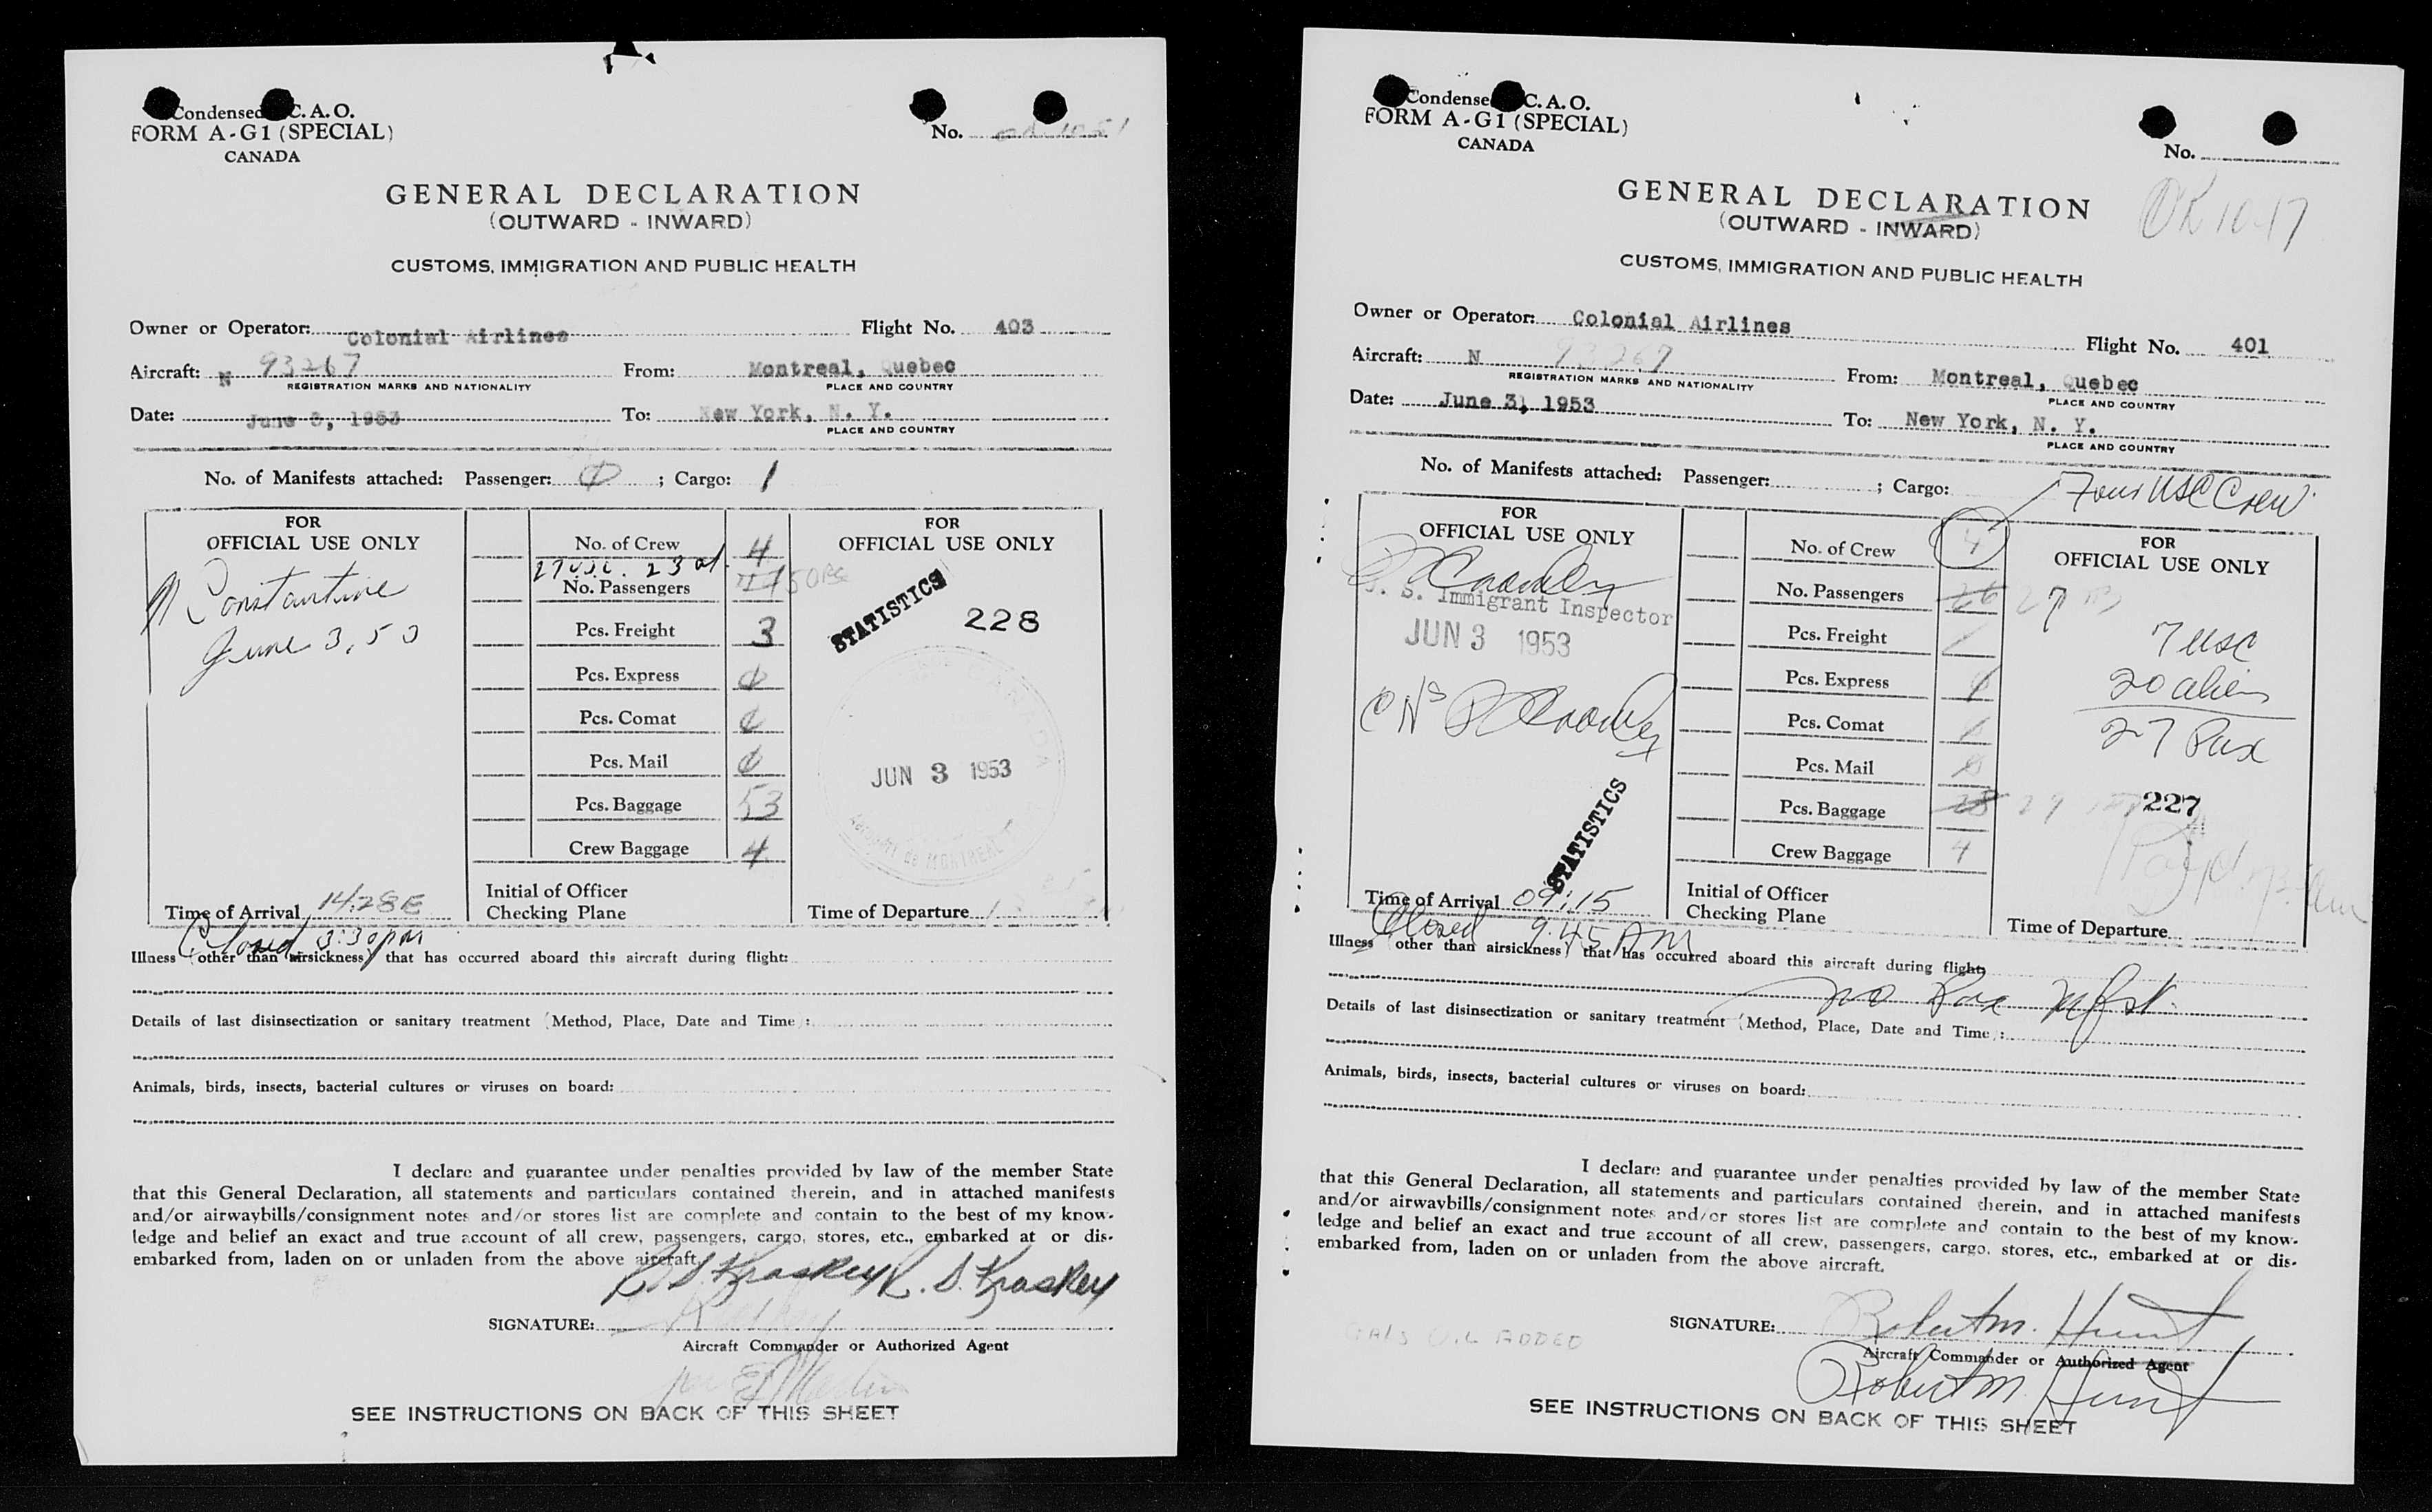 Condensed C. A. O.
FORM A-G1 (SPECIAL)
CANADA
No.
GENERAL DECLARATION
(OUTWARD - INWARD)
CUSTOMS, IMMIGRATION AND PUBLIC HEALTH
Owner or Operator: Colonial Airlines Flight No. 403
Aircraft: N 93267 From: Montreal, Quebec
REGISTRATION MARKS AND NATIONALITY PLACE AND COUNTRY
Date: June 3, 1953 To: New York, N. Y.
PLACE AND COUNTRY
No. of Manifests attached: Passenger: ; Cargo: 1
FOR
OFFICIAL USE ONLY
N Constantine
June 3, 53
No. of Crew 4
27 USC. 23 al.
No. Passengers 50
Pcs. Freight 3
Pcs. Express
Pcs. Comat
Pcs. Mail
Pcs. Baggage 53
Crew Baggage 4
FOR
OFFICIAL USE ONLY
STATISTICS
228
JUN 3 1953
Time of Arrival 14:28E
Initial of Officer
Checking Plane
Time of Departure
Closed 3:30 pm
Illness (other than airsickness) that has occurred aboard this aircraft during flight:
Details of last disinsectization or sanitary treatment (Method, Place, Date and Time):
Animals, birds, insects, bacterial cultures or viruses on board:
I declare and guarantee under penalties provided by law of the member State
that this General Declaration, all statements and particulars contained therein, and in attached manifests
and/or airwaybills/consignment notes and/or stores list are complete and contain to the best of my know-
ledge and belief an exact and true account of all crew, passengers, cargo, stores, etc., embarked at or dis-
embarked from, laden on or unladen from the above aircraft.
R. S. Kraskey R. S. Kraskey
SIGNATURE:
Aircraft Commander or Authorized Agent
SEE INSTRUCTIONS ON BACK OF THIS SHEET
Condensed C. A. O.
FORM A-G1 (SPECIAL)
CANADA
No.
OK 1047
GENERAL DECLARATION
(OUTWARD - INWARD)
CUSTOMS, IMMIGRATION AND PUBLIC HEALTH
Owner or Operator: Colonial Airlines
Flight No. 401
Aircraft: N 93267 From: Montreal, Quebec
REGISTRATION MARKS AND NATIONALITY PLACE AND COUNTRY
Date: June 3, 1953 To: New York, N. Y.
PLACE AND COUNTRY
No. of Manifests attached: Passenger: ; Cargo:
Four USC Crew
FOR
OFFICIAL USE ONLY
U. S. Immigrant Inspector
JUN 3 1953
STATISTICS
No. of Crew 4
No. Passengers 26 27
Pcs. Freight
Pcs. Express
Pcs. Comat
Pcs. Mail
Pcs. Baggage 28 29
Crew Baggage 4
FOR
OFFICIAL USE ONLY
7 USC
20 alien
27 Pax
227
Time of Arrival 09:15
Initial of Officer
Checking Plane
Time of Departure
Closed 9:45 AM
Illness (other than airsickness) that has occurred aboard this aircraft during flight:
no Pax Mfst.
Details of last disinsectization or sanitary treatment (Method, Place, Date and Time):
Animals, birds, insects, bacterial cultures or viruses on board:
I declare and guarantee under penalties provided by law of the member State
that this General Declaration, all statements and particulars contained therein, and in attached manifests
and/or airwaybills/consignment notes and/or stores list are complete and contain to the best of my know-
ledge and belief an exact and true account of all crew, passengers, cargo, stores, etc., embarked at or dis-
embarked from, laden on or unladen from the above aircraft.
SIGNATURE: Robert M. Hunt
GALS OIL ADDED
Aircraft Commander or Authorized Agent
Robert M. Hunt
SEE INSTRUCTIONS ON BACK OF THIS SHEET